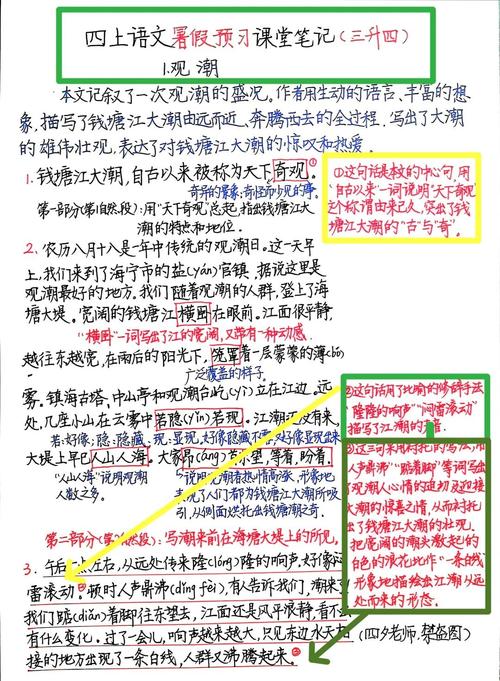 四上语文暑假预习课堂笔记(三升四)
1.观潮
本文记叙了一次观潮的盛况。作者用生动的语言、丰富的想
象,描写了钱塘江大潮由远而近、奔腾西去的全过程,写出了大潮
的雄伟壮观,表达了对钱塘江大潮的惊叹和热爱。
1.钱塘江大潮,自古以来被称为天下奇观。①
奇异的景象;奇怪而少见的事。
第一部分(第1自然段):用“天下奇观”总起,指出钱塘江大
潮的特点和地位。
①这句话是全文的中心句,用
“自古以来”一词说明“天下奇观”
这个称谓由来已久,突出了钱
塘江大潮的“古”与“奇”。
2.农历八月十八是一年中传统的观潮日。这一天早
上,我们来到了海宁市的盐(yán)官镇,据说这里是
观潮最好的地方。我们随着观潮的人群,登上了海
塘大堤。宽阔的钱塘江横卧在眼前。江面很平静,
“横卧”一词写出了江的宽阔,又带有一种动感。
越往东越宽,在雨后的阳光下,笼罩着一层蒙蒙的薄(bó)
广泛覆盖的样子。
雾。镇海古塔、中山亭和观潮台屹(yì)立在江边。远
处,几座小山在云雾中若隐(yǐn)若现。江潮还没有来,
若:好像;隐:隐藏;现:显现。好像隐藏不
大堤上早已人山人海。大家昂(áng)首东望,等着,盼着。
“人山人海”说明观潮
人数之多。
说明观潮者热情高涨,形象地
表现了人们都为钱塘江大潮所吸
引,从侧面烘托出钱塘潮之奇。
第二部分(第2自然段):写潮来前在海塘大堤上的所见。
②这句话用了比喻的修辞手法
“隆隆的响声”“闷雷滚动”
描写了江潮的声音。
③这三句采用衬托的写法,用
“人声鼎沸”“踮着脚”等词写出了
观潮人心情的迫切及迎接
大潮的惊喜之情,从而衬托
出了钱塘江大潮的壮观。
把宽阔的潮头激起的白
色的浪花比作“一条白线”
形象地描绘出江潮从远
处而来的形态。
3.午后一点左右,从远处传来隆(lóng)隆的响声,好像闷
雷滚动。顿时人声鼎沸(dǐng fèi),有人告诉我们,潮来了!
我们踮(diǎn)着脚往东望去,江面还是风平浪静,看不出
有什么变化。过了一会儿,响声越来越大,只见东边水天相
接的地方出现了一条白线,人群又沸腾起来。③
(四夕老师,禁盗图)